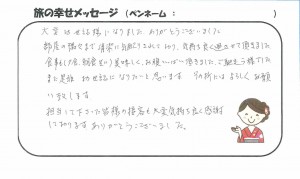 旅の幸せメッセージ (ペンネーム: )
大変お世話になりました ありがとうございました
部屋の隅々まで清潔に気配りされており、気持ち良く過ごせて頂きました
食事も夕食、朝食という美味しく、お腹いっぱい頂きました。ご馳走さまでした
また是非お世話になりたいと思います その時にはよろしくお願い
い致します
担当して下さった皆様の接客も大変気持ち良く感謝
しております ありがとうございました。